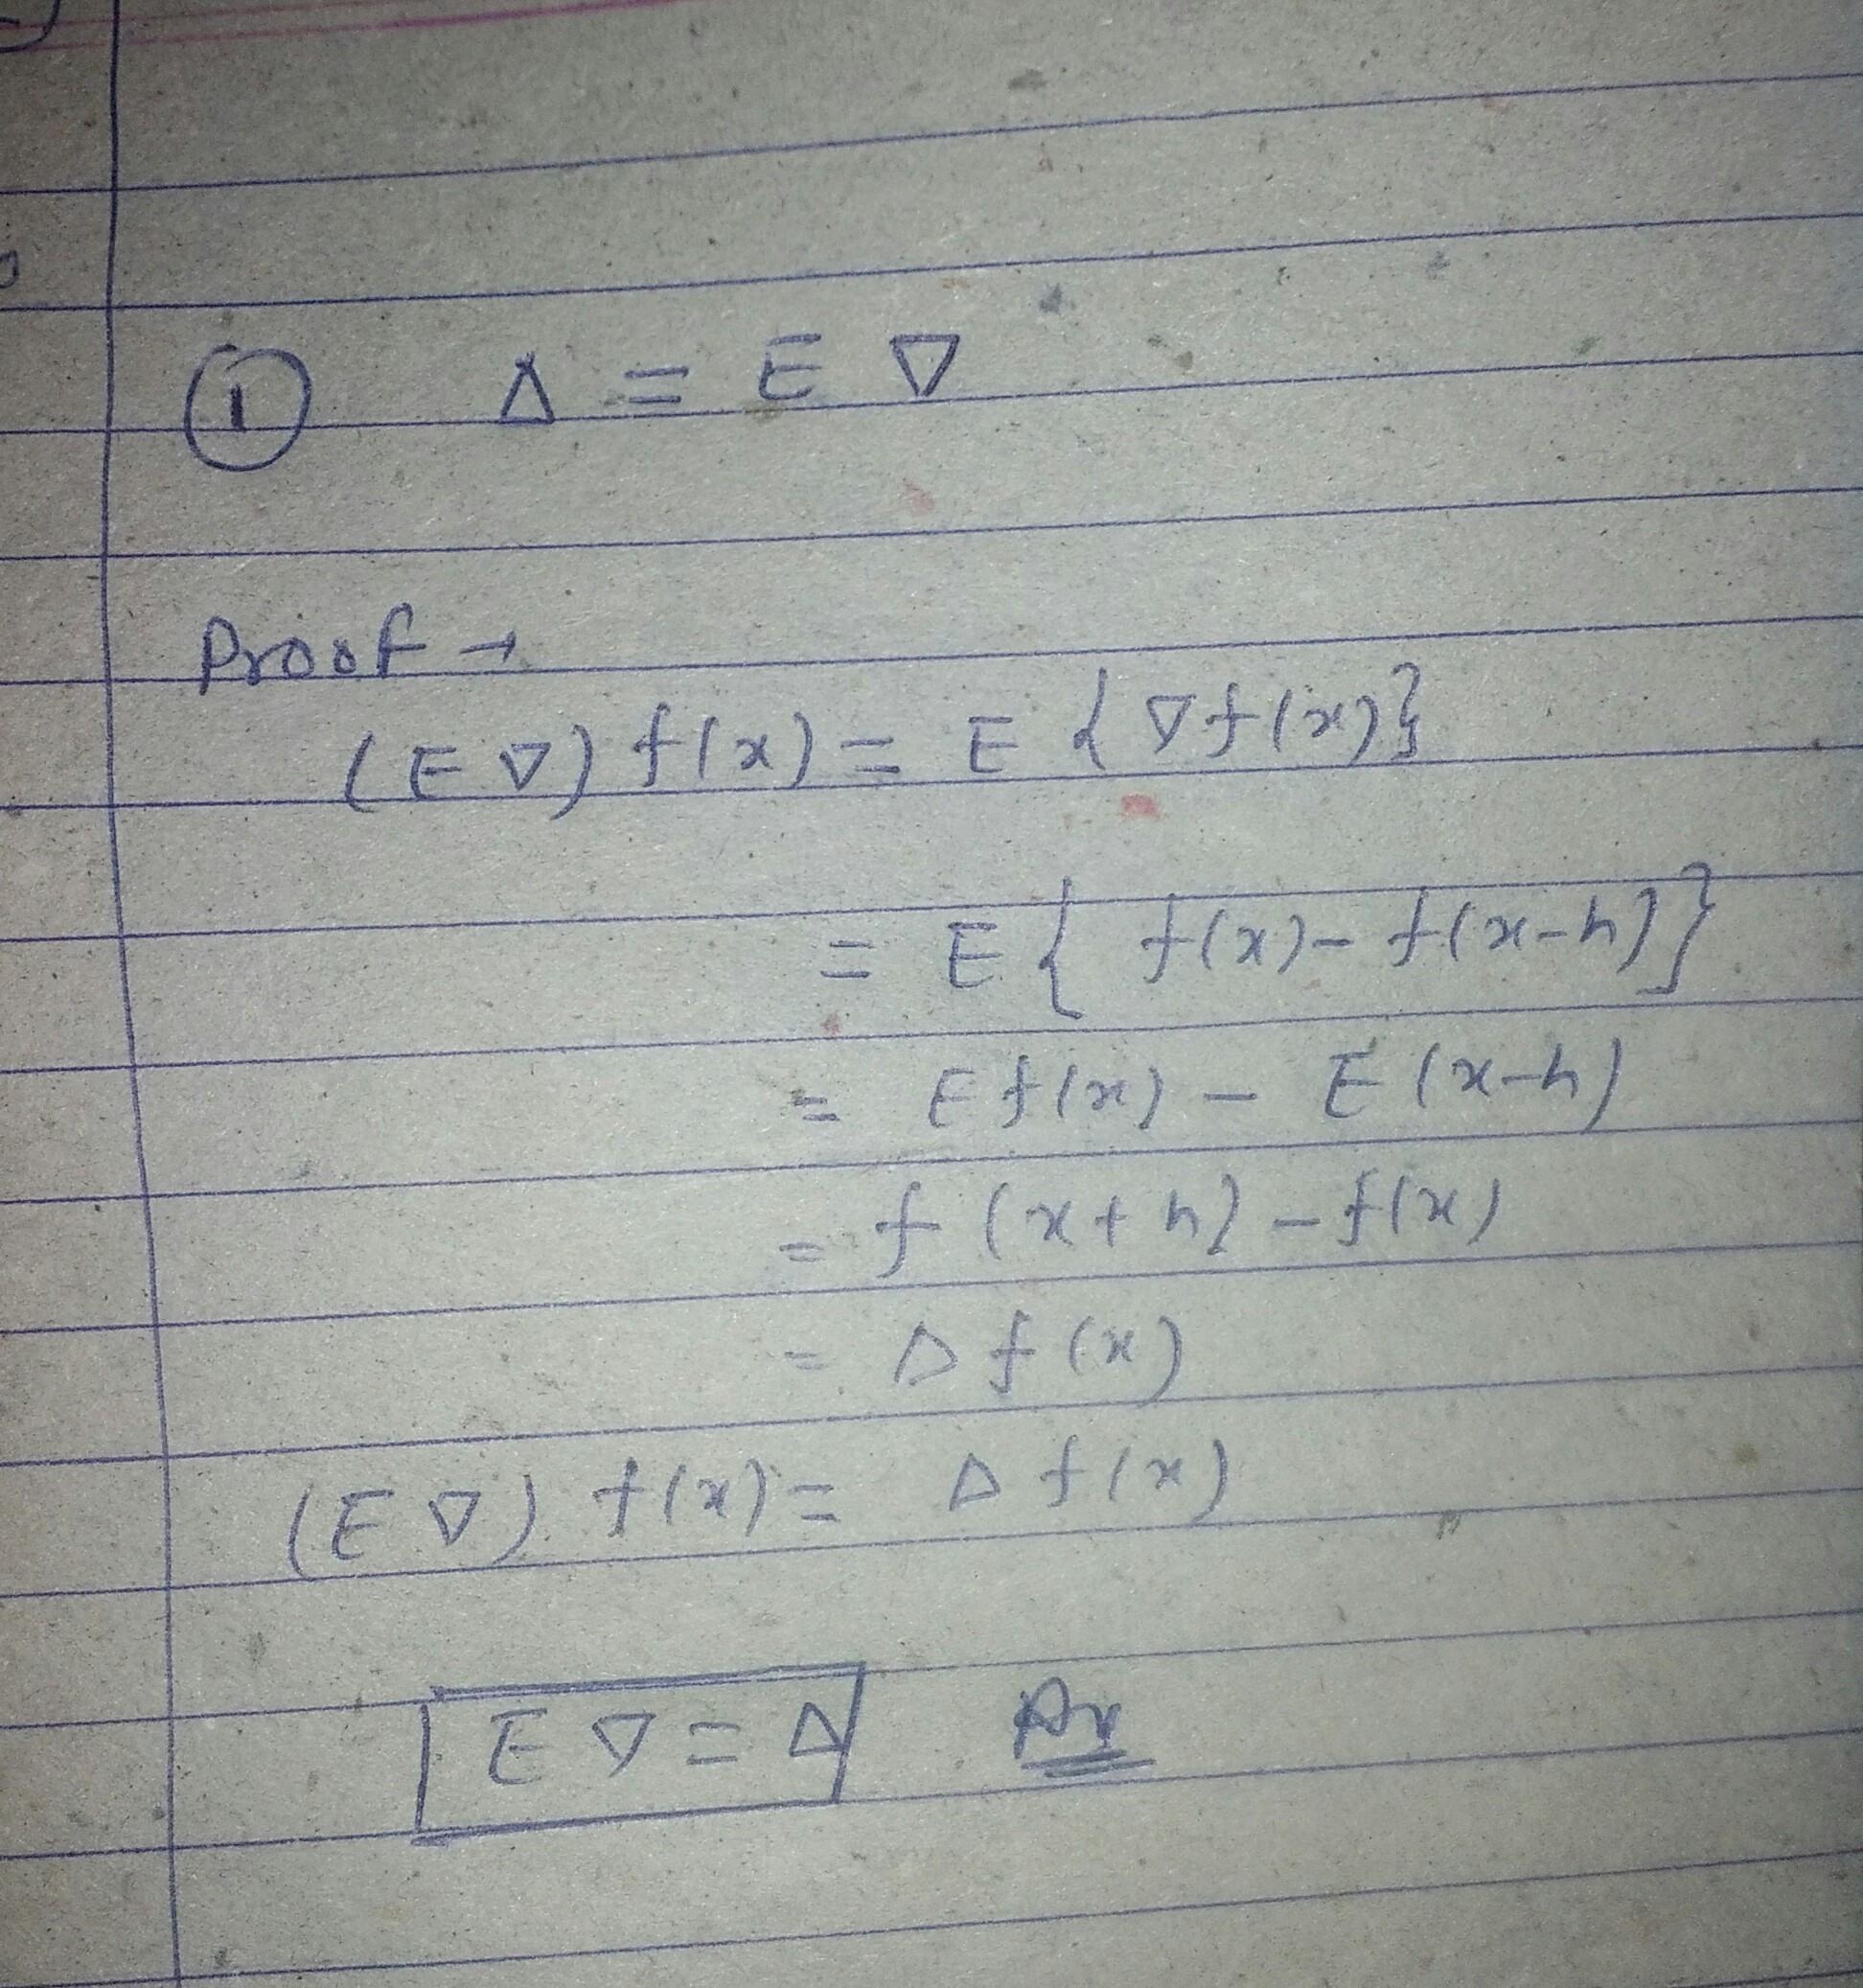 ① Δ = E ∇
Proof →
(E ∇) f(x) = E { ∇ f(x)}
= E { f(x) - f(x-h)}
= E f(x) - E (x-h)
= f (x + h) - f(x)
= Δ f (x)
(E ∇) f(x) = Δ f(x)
E ∇ = Δ